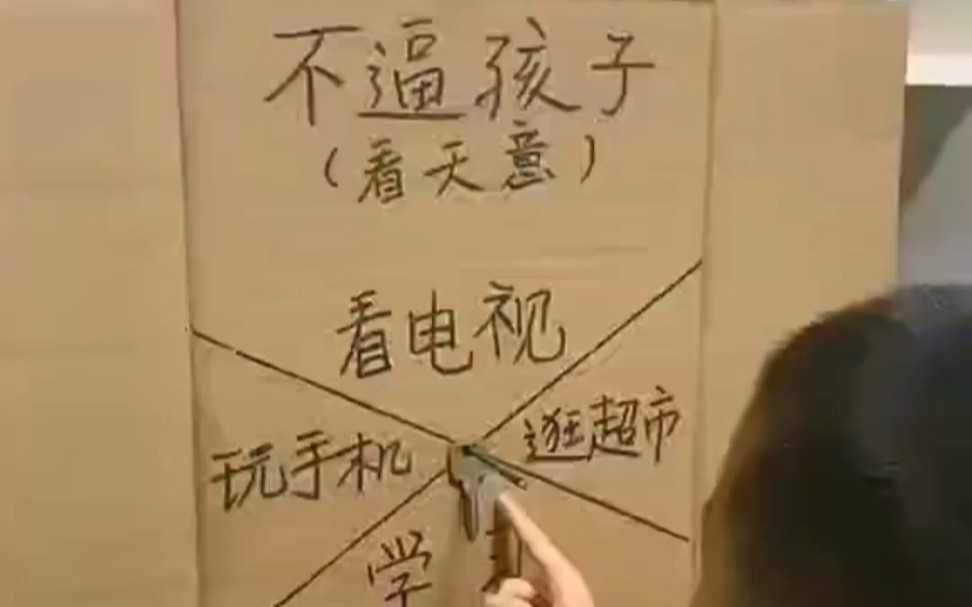 不逼孩子
（看天意）
看电视
玩手机
逛超市
学